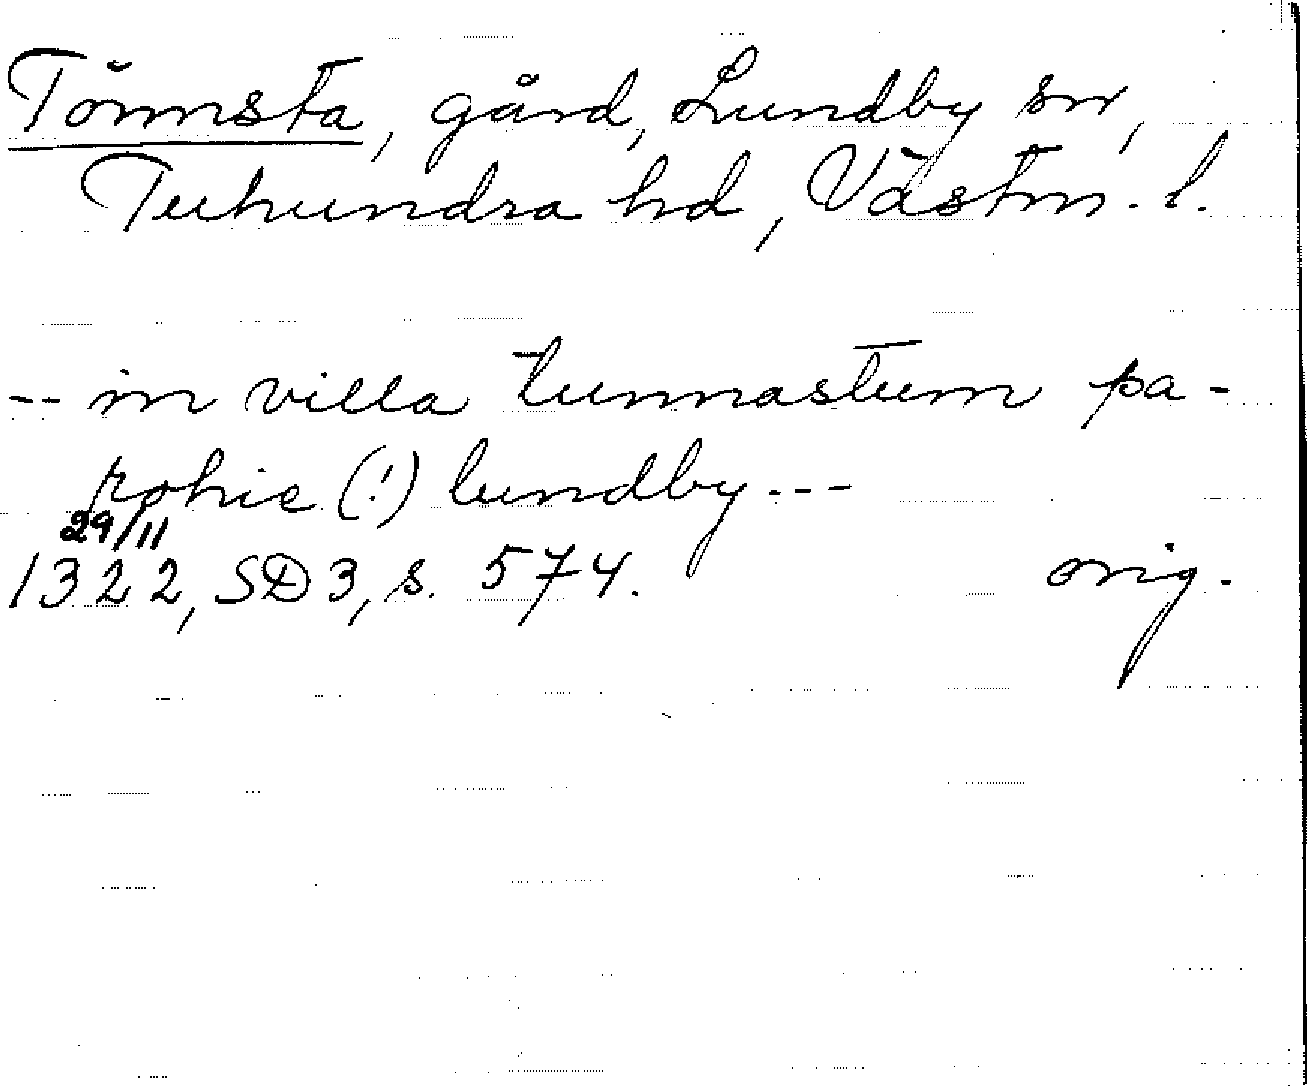 Tönnsta, gård, Lundby sn,
Tuhundra hd, Västm. l.
-- in villa tunnastum pa-
rohie (!) lundby ---
29/11
1322, SD3, s. 574. orig.